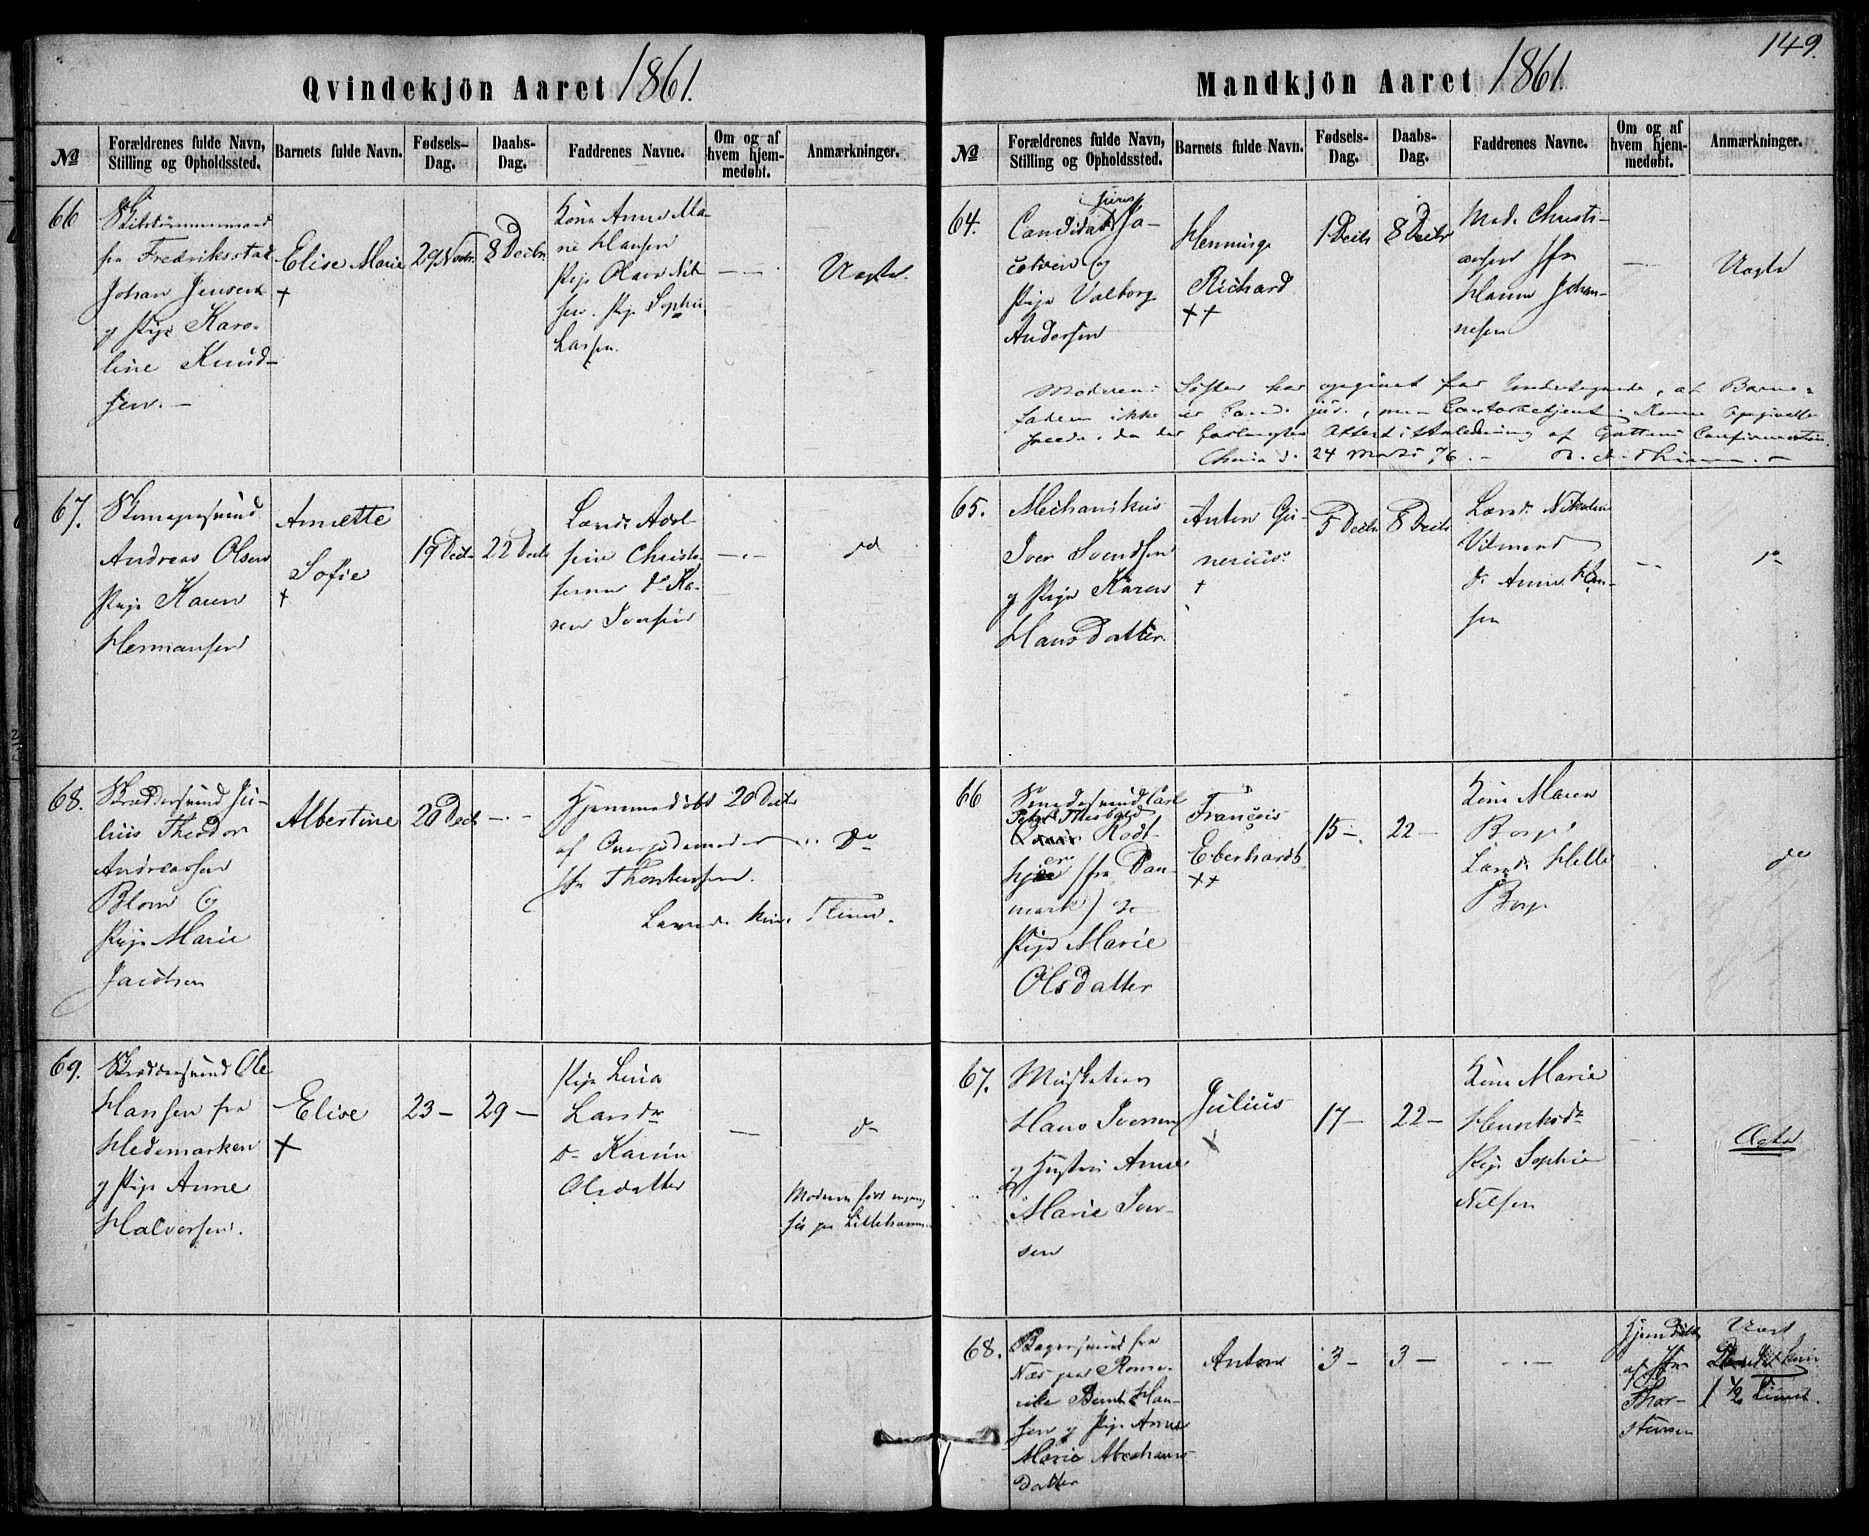 149.
Qvindekjön Aaret 1861.
№
Forældrenes fulde Navn, Stilling og Opholdssted.
Barnets fulde Navn.
Fødsels-Dag.
Daabs-Dag.
Faddrenes Navne.
Om og af hvem hjem-medøbt.
Anmærkninger.
66
Skibstømmermand
fra Fredriksstad
Johan Jensen
og Pige Karo-
line Knud-
sen. —
Elise Marie
+
29 Novbr.
8 Decbr
Kone Anne Ma-
rie Hansen
Pige Olava Nil-
sen. Pig Sophie
Larsen.
— —
Uægte.
67.
Skomagersvend
Andreas Olsen
Pige Karen
Hermansen
Annette
Sofie
+
19 Decbr
22 Decbr
Christo-
—.—
do
68.
Skræddersvend Ju-
lius Theodor
Andreassen
Blom og
Pige Marie
Jacobsen
Albertine
20 Decb
—.—
Hjemmedøbt 20 Decbr
af Overjodemoder
fr Thorstensen.
Levede kun 1 Time.
do
69.
Skræddersvend Ole
Hansen fra
Hedemarken
og Pige Anne
Halvorsen.
Elise
+
23 —
29 —
Pige Lina
Larsdr
do Karine
Olsdatter
—
do
Moderen før engang
paa Lilleham
Mandkjön Aaret 1861.
№
Forældrenes fulde Navn, Stilling og Opholdssted.
Barnets fulde Navn.
Fødsels-Dag.
Daabs-Dag.
Faddrenes Navne.
Om og af hvem hjem-medøbt.
Anmærkninger.
64.
juris
Candidat Ja-
cobsen og
Pige Valborg
Andersen
Henning
Richard
++
1 Decb
8 Decbr
Mad. Christi-
ansen Jfr
Hanna Johan-
nesen
—
Uægte
Moderens Søster har opgivet for Undertegnede, at Barne-
faderen ikke er Cand. jur., men Contorbetjent. Denne Opgivelse
skeede, da der forlangtes Attest i Anledning af Guttens Confirmation.
Chria d. 24 Marts 76. —
65.
Mechanikus
Iver Svendsen
og Pige Karen
Hansdatter
Anton Gu-
nerius.
+
5 Decbr
8 Decbr
Nikoline
do Anne Han-
sen
— —
do
66
Smedesvend Carl
Peter Theobald
Rodt-
hjer (fra Dan-
mark) og
Pige Marie
Olsdatter
François
Eberhardt
++
15 —
22 —
Kone Maren
Borg
Helle
Borg
do
67.
Musketeer
Hans Iversen
og Hustru Anne
Marie Iver-
sen
Julius
+
17 —
22 —
Kone Marie
Henriksdr
Pige Sophie
Nilsen
Ægte
68.
Bagersvend fra
Næs paa Rome-
rike Bernt Han-
sen og Pige Anne
Marie Abrahams-
datter
Anton
3 —
3 —
—.—
Hjemdøbt
af Jfr
Thor-
stensen
Uægt
kun
1 1/2 Time.